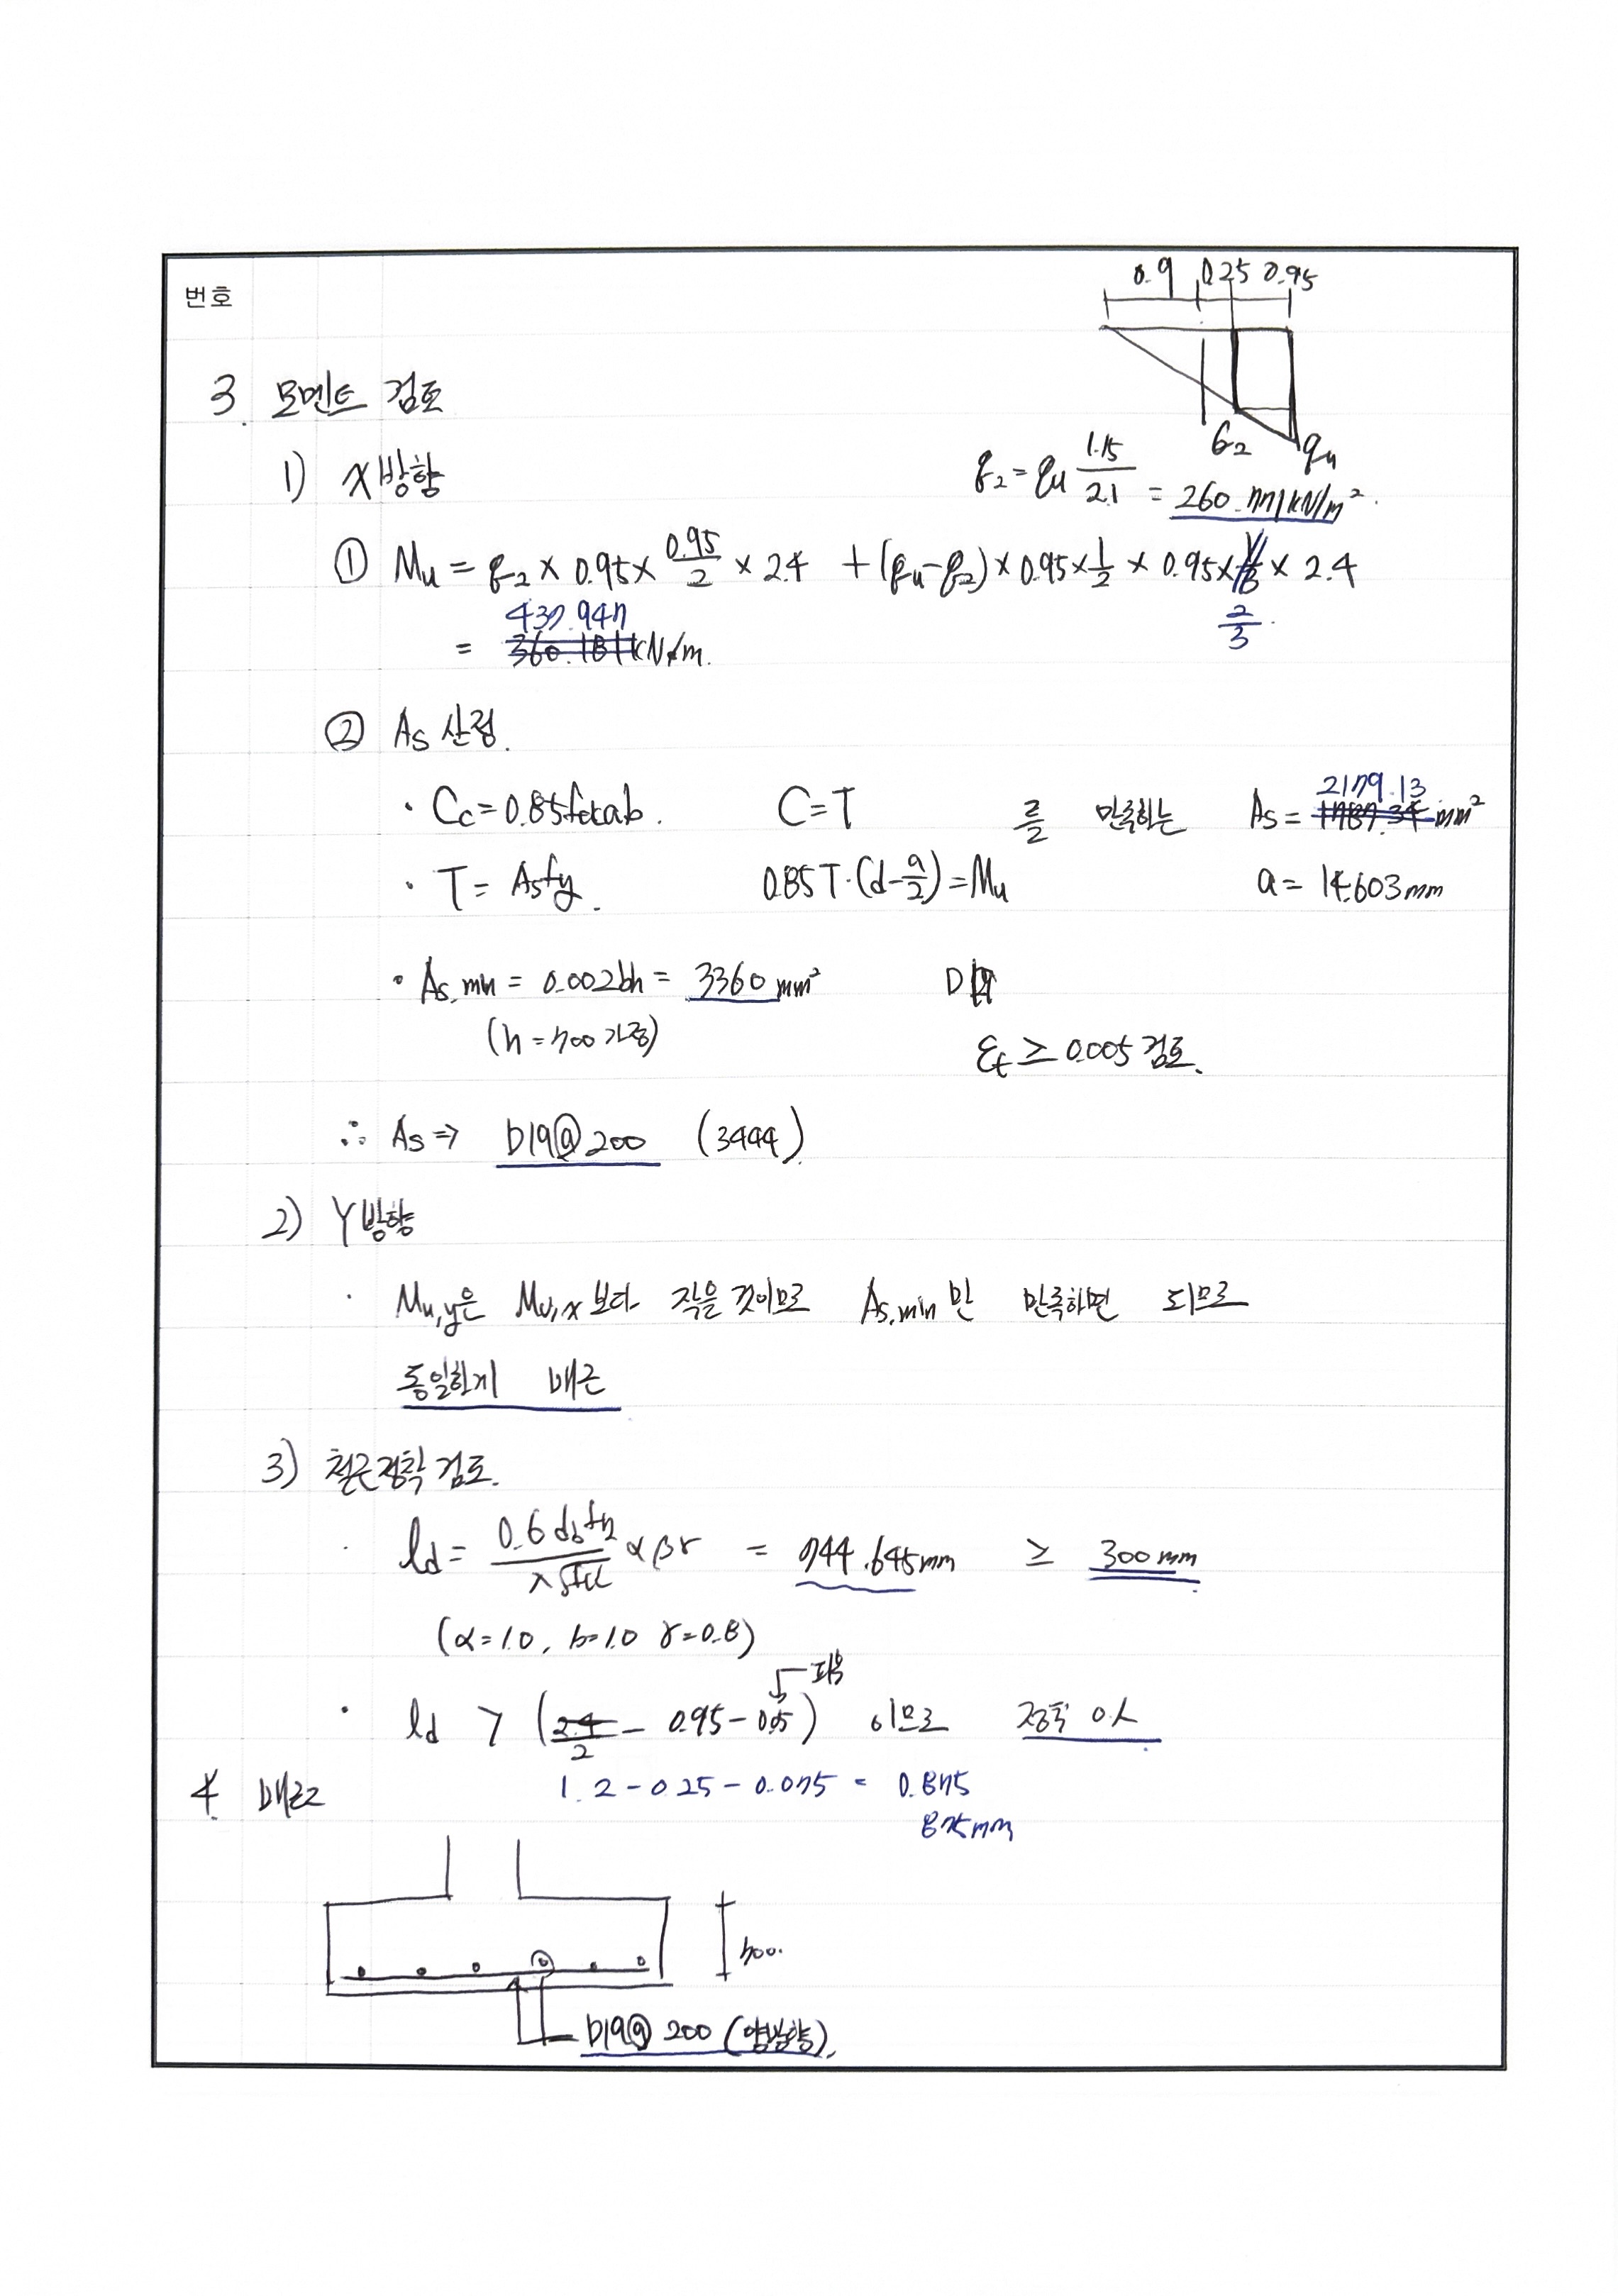 번호
0.9 0.25 0.95
3. 모멘트 검토
G2 qu
1) X방향
q2 = qu 1.15/2.1 = 260.771kN/m².
① Mu = q2 × 0.95 × 0.95/2 × 2.4 + (qu-q2) × 0.95 × 1/2 × 0.95 × 2/3 × 2.4
437.947
= 360.181kN·m.
② As 산정.
2179.13
· Cc = 0.85fckab. C=T 를 만족하는 As = 1787.34 mm²
· T = Asfy. 0.85T·(d-a/2)=Mu a = 14.603mm
· As,min = 0.002bh = 3360mm² D19
(h=700 가정)
εt ≥ 0.005 검토.
∴ As ⇒ D19@200 (3444)
2) Y방향
· Mu,y은 Mu,x 보다 작을 것이므로 As,min 만 만족하면 되므로
동일하게 배근
3) 철근정착 검토.
· ld = 0.6 db fy / λ√fck αβγ = 744.645mm ≥ 300mm
(α=1.0, b=1.0 γ=0.8)
피복
· ld > (2.4/2 - 0.95 - 0.05) 이므로 정착
4. 배근
1.2 - 0.25 - 0.075 = 0.875
875mm
700.
D19@200 (양방향).